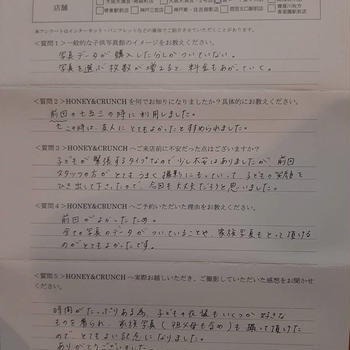 店舗
本アンケートはインターネット・パンフレットなどの媒体でご紹介させていただくことがあります。
<質問1>一般的な子供写真館のイメージをお教えください。
写真データが購入した分しかついていない。
写真を選ぶ枚数が増えると料金もあがっていく。
<質問2>HONEY&CRUNCHを何でお知りになりましたか?具体的にお教えください。
前回の七五三の時に利用しました。
その時は、友人にとてもよかったと すすめられました。
<質問3>HONEY&CRUNCHへご来店前に不安だった点はございますか?
子どもが緊張するタイプなので少し不安はありましたが、前回
スタッフの方がとてもうまく撮影にもっていって、子どもの笑顔を
ひき出して下さったので、今回も大丈夫だろうと思いました。
<質問4>HONEY&CRUNCHへご予約いただいた理由をお教えください。
前回がよかったため。
全ての写真のデータがついていることや、家族写真もとって頂ける
のがとてもよかったです。
<質問5>HONEY&CRUNCHへ実際お越しいただき、ご撮影していただいた感想をお聞かせ
ください。
時間がたっぷりある為、子どもの衣装もいくつか好きな
ものを着られ、家族写真(祖父母も含め)も撮って頂けた
ので、とてもよい記念になりました。
ありがとうございました。